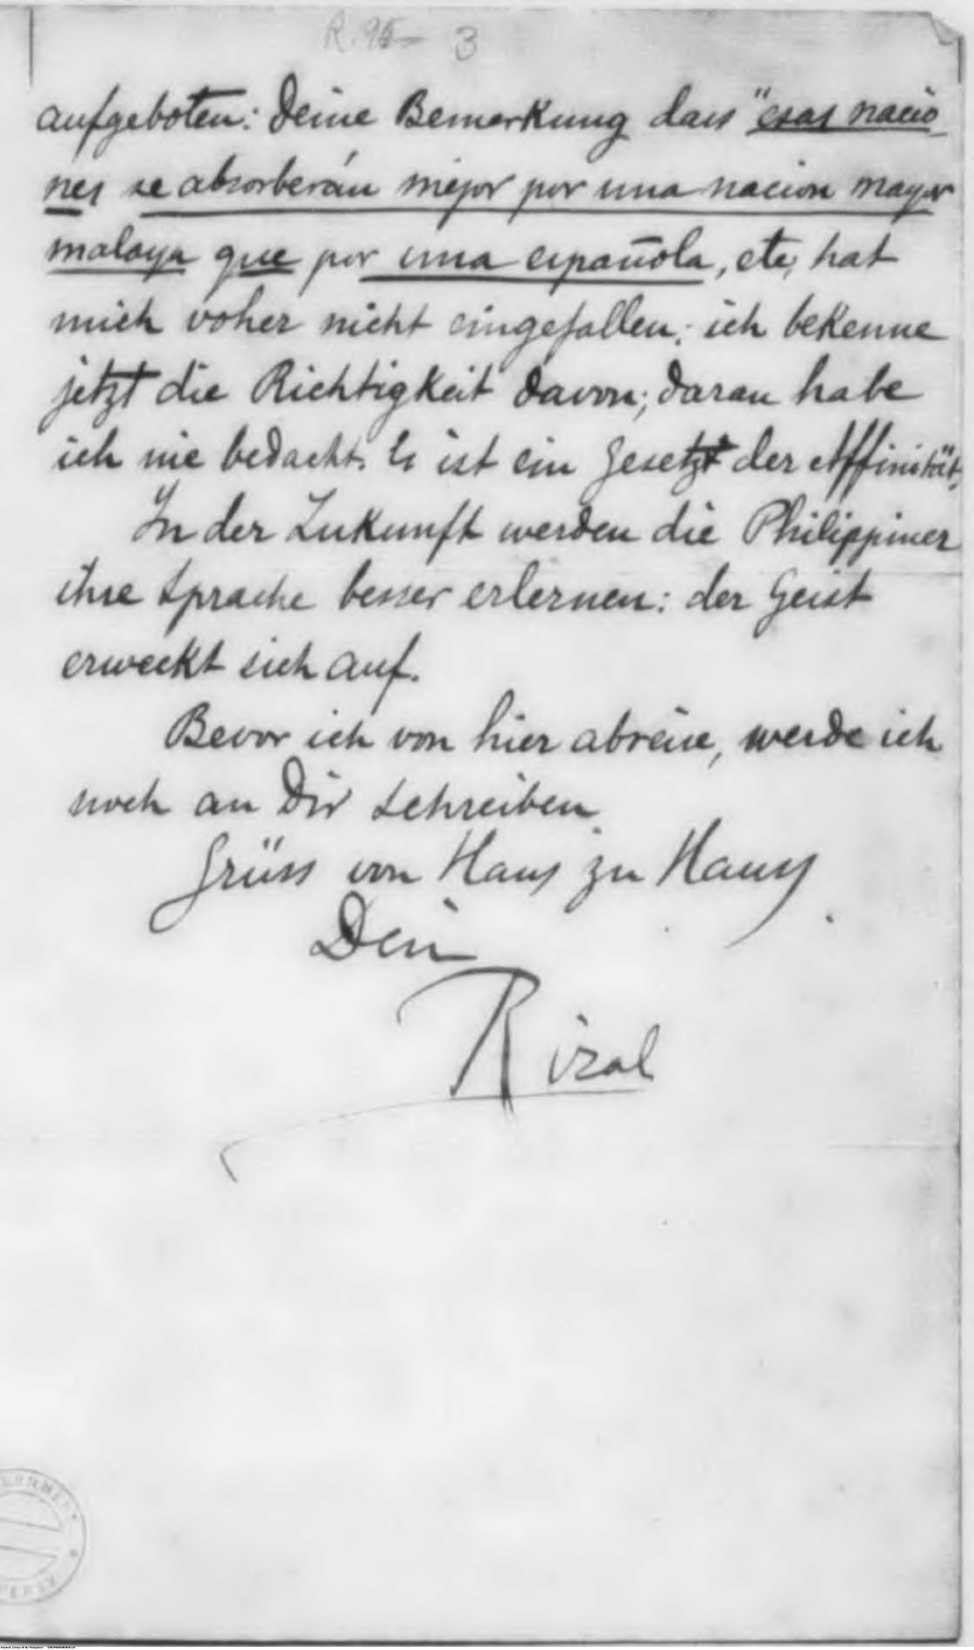 R. 95- 3
aufgeboten: Deine Bemerkung dass "esas nacio
nes se absorberán mejor por una nacion mayor
malaya que por una española, etc, hat
mich voher nicht eingefallen; ich bekenne
jetzt die Richtigkeit davon; daran habe
ich nie bedacht. Es ist ein Gesetzt der Affinität,
In der Zukunft werden die Philippiner
ihre Sprache besser erlernen: der Geist
erweckt sich auf.
Bevor ich von hier abreise, werde ich
noch an Dir schreiben.
Grüss von Haus zu Haus
Dein
Rizal